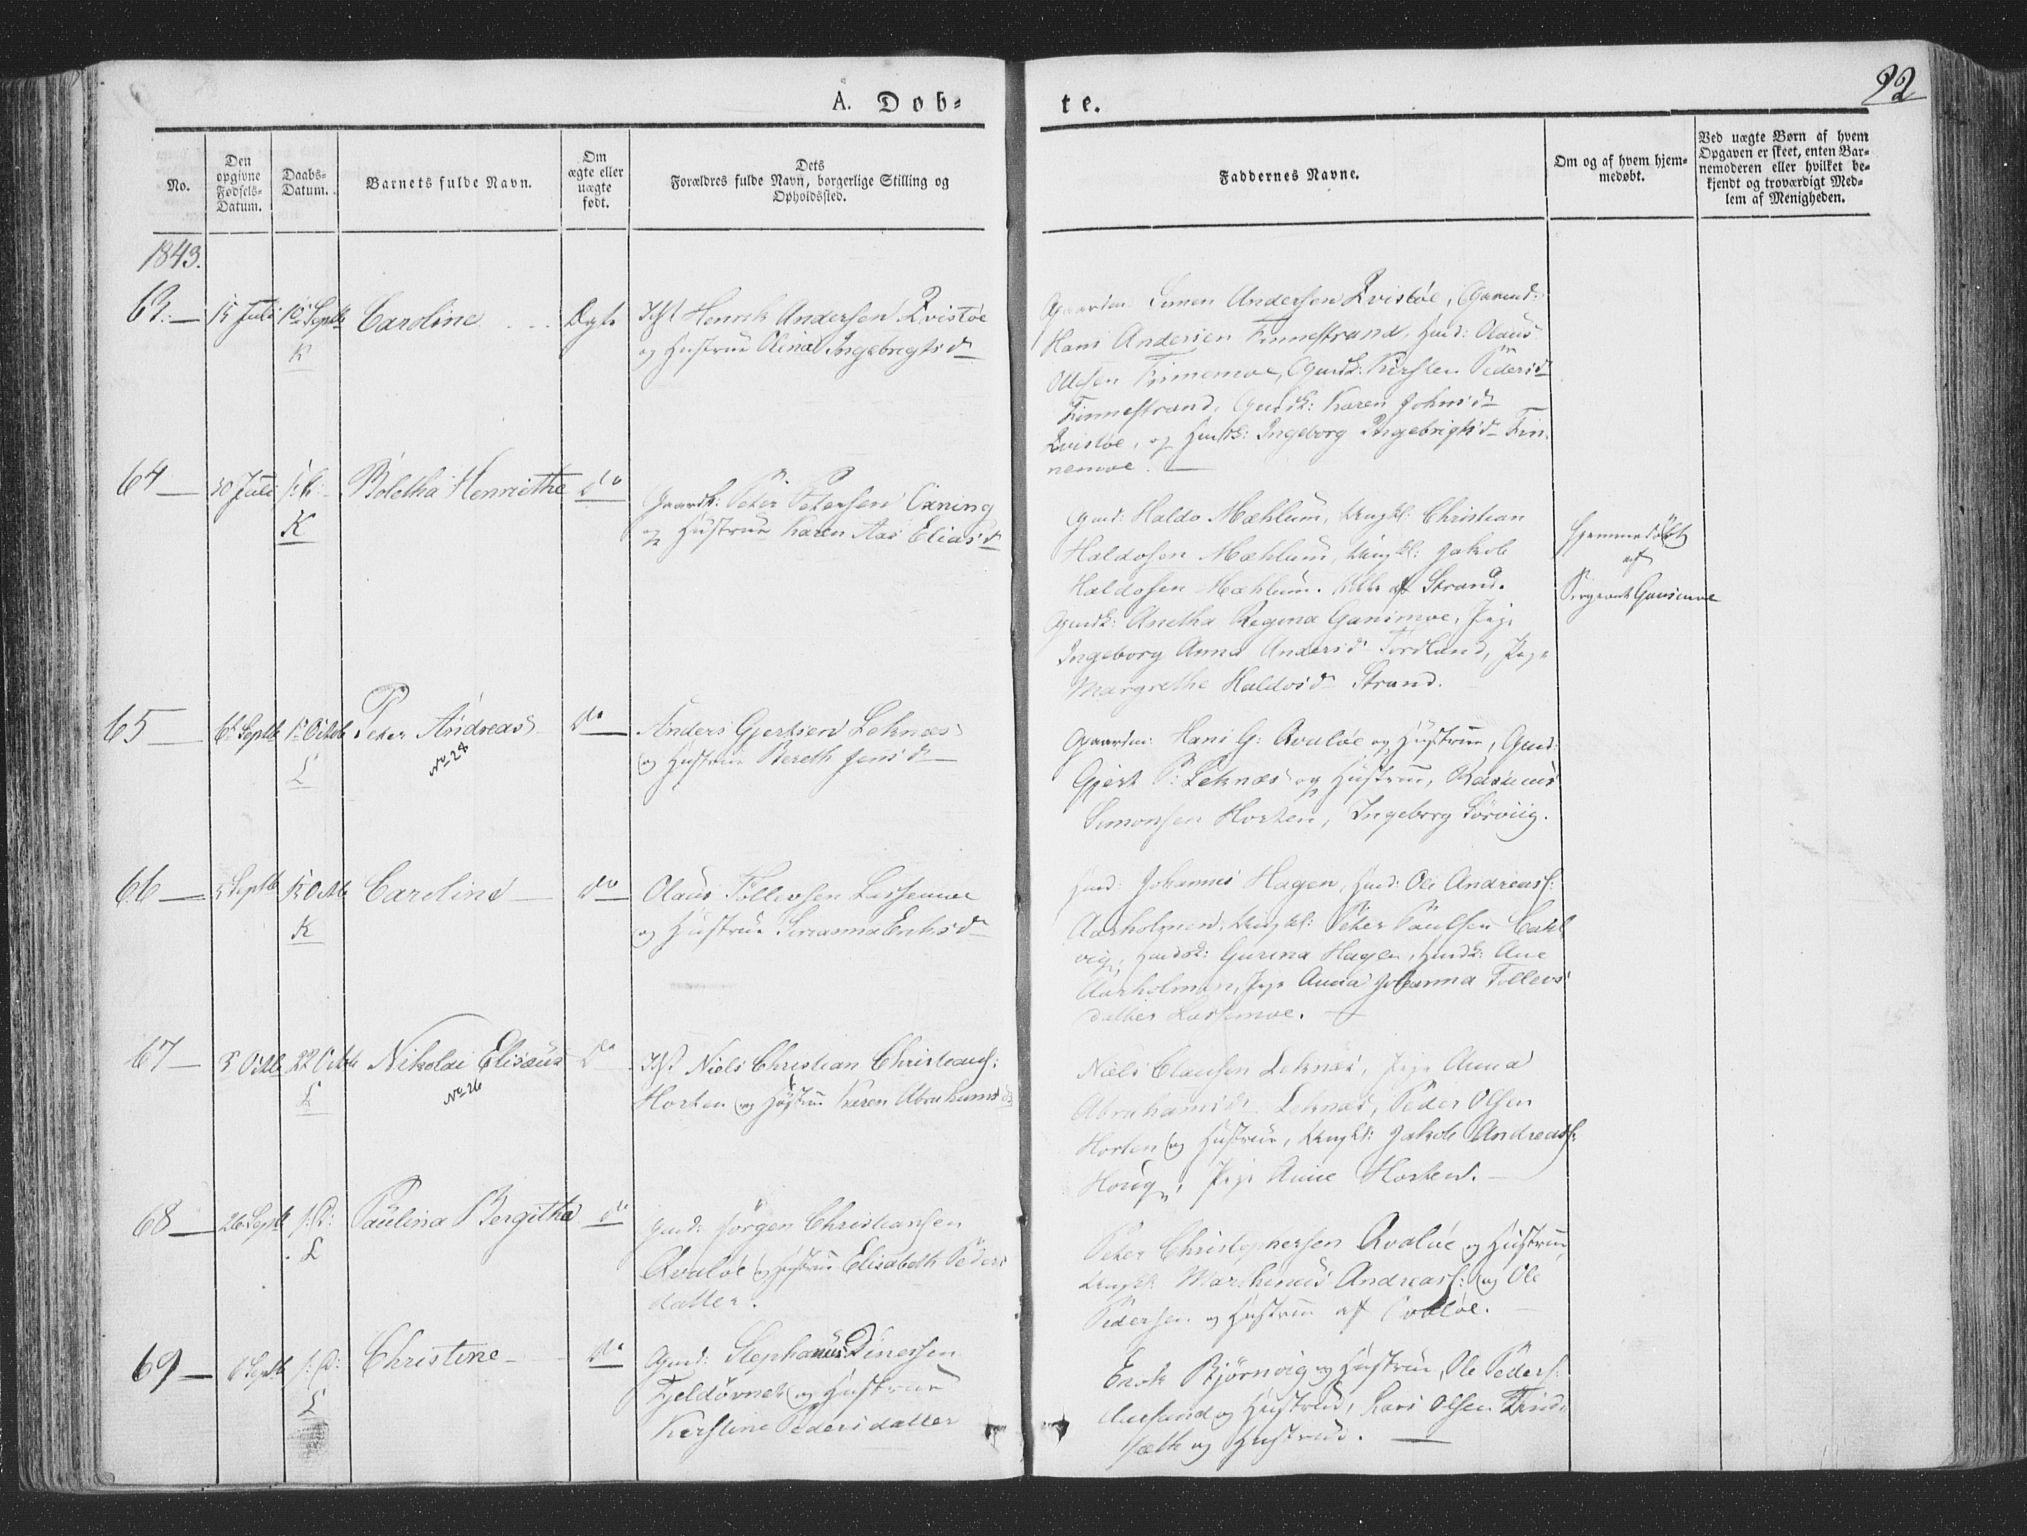 22
A. Dob-
te.
No.
Den
opgivne
Fødsels-
Datum.
Daabs-
Datum.
Barnets fulde Navn.
Om
ægte eller
uægte
født.
Dets
Forældres fulde Navn, borgerlige Stilling og
Opholdssted.
Faddernes Navne.
Om og af hvem hjem-
medøbt.
Ved uægte Børn af hvem
Opgaven er skeet, enten Bar-
nemoderen eller hvilket be-
kjendt og troværdigt Med-
lem af Menigheden.
1843.
63. 15 Juli Septb Caroline Ægte Henrik Andersen Qvistøe
K
og Hustrue Olina Ingebrigtsd
Simen Andersen Qvistøe, Gaard:
Hans Andersen Finnestrand, Huusd: Olaus
Olsen Finnemoe, Kirsten Pedersd
Finnestrand, Karen Johnsd
Qvistøe, og Ingeborg Ingebrigtsd Fin-
nemoe.
64 30 Juli Boletha Henriethe do
K
Peter Petersen Oxning
og Hustrue Karen Aas Eliasd
Gmd: Haldo Mæhlum, Ungkl: Christian
Haldosen Mæhlum, Ungkl: Jakob
Haldosen Mæhlum. Alle af Strand.
Anetha Regina Gansmoe, Pige
Ingeborg Anna Andersd Fordland, Pige
Margrethe Haldosd Strand.
Hjemmedøbt
af
Sergeant Gansmoe
65 6 Septb 1 Octob Peter Andreas do
No 24
L
Anders Gjertsen Leknæs
og Hustrue Bereth Jensd
Gaardm: Hans G: Qvaløe og Hustrue, Gmd:
Gjert P: Leknæs og Hustrue, Rasmus
Simonsen Horten, Ingeborg Sørviig.
66 5 Septb 15 Octob Caroline do
K
Olaus Tollevsen Lassemoe
og Hustrue Eriksd
Johannes Hagen, Huusd: Ole Andreass:
Aarholmen, Ungkl: Peter Paulsen
vig, Gurina Hagen, Ane
Aarholmen, Pige Anna Johanna Tollevs
datter Lassemoe.
67 5 Octob 22 Octob Nikolai Elisæus do
No 26
L
Niels Christian Christians:
Horten og Hustrue Karen Abrahamsd
Niels Clausen Leknæs, Pige Anna
Abrahamsd Leknæs, Peder Olsen
Horten og Hustrue, Ungkl: Jakob Andreass:
Houg, Pige Anne Horten.
68 26 Septb Paulina Bergitha do
L
Gmd: Jørgen Christiansen
Qvaløe og Hustrue Elisabeth Peders
datter.
Peter Christophersen Qvaløe og Hustrue,
Ungkl: Andreass: og Ole
Pedersen og Hustrue af Qvaløe.
69 6 Septb Christine do
L
Gmd: Stephanus Einersen
Fjeldøvnet og Hustrue
Kerstine Pedersdatter
Enok Bjørnvig og Hustrue, Ole Peders:
og Hustrue, Olsen
sæth og Hustrue.